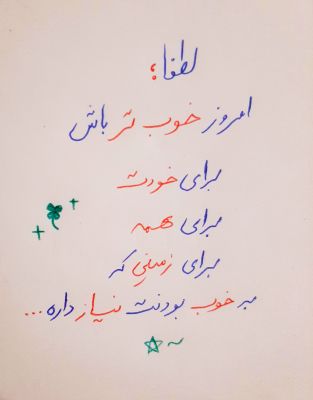 لطفا؛
امروز خوب تر باش
برای خودت
برای همه
برای زمینی که
به خوب بودنت نیاز داره...